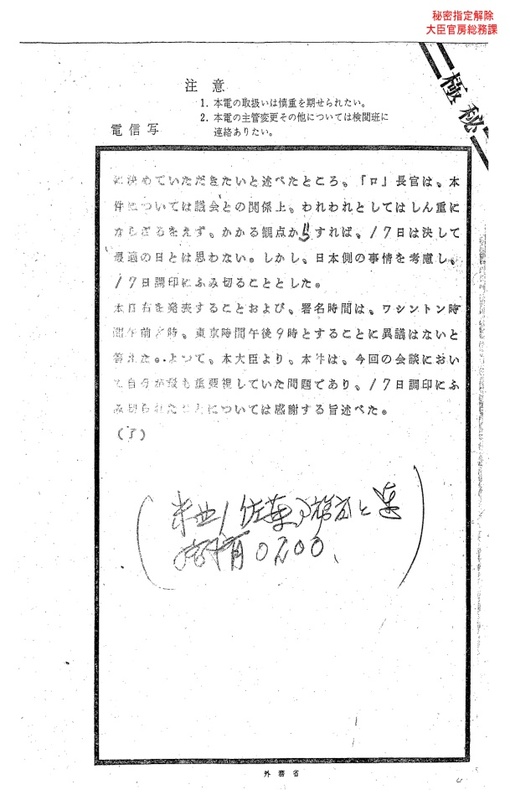 秘密指定解除
大臣官房総務課
極秘
注意
1. 本電の取扱いは慎重を期せられたい。
2. 本電の主管変更その他については検閲班に
連絡ありたい。
電信写
に決めていただきたいと述べたところ、「ロ」長官は、本
件については議会との関係上、われわれとしてはしん重に
ならざるをえず、かかる観点からすれば、17日は決して
最適の日とは思わない。しかし、日本側の事情を考慮し、
17日調印にふみ切ることとした。
本日右を発表することおよび、署名時間は、ワシントン時
間午前8時、東京時間午後9時とすることに異議はないと
答えた。よつて、本大臣より、本件は、今回の会談におい
て自分が最も重要視していた問題であり、17日調印にふ
み切られたことについては感謝する旨述べた。
(了)
外務省